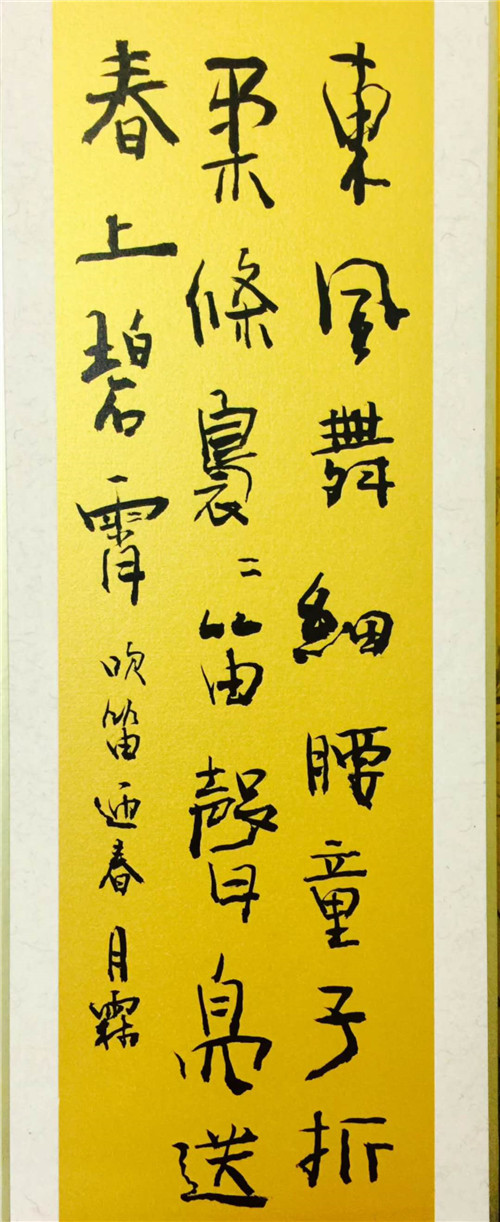 東風舞細腰童子折
柔條裊〻笛聲亮送
春上碧霄
吹笛迎春 月霖